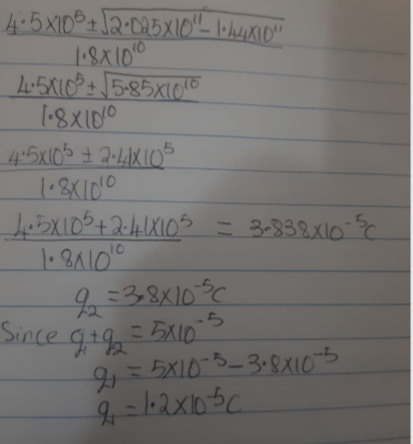 4.5x10⁵ ± √2.025x10¹¹ - 1.44x10¹¹
1.8x10¹⁰
4.5x10⁵ ± √5.85x10¹⁰
1.8x10¹⁰
4.5x10⁵ ± 2.41x10⁵
1.8x10¹⁰
4.5x10⁵ + 2.41x10⁵ = 3.838x10⁻⁵C
1.8x10¹⁰
q₂ = 3.8x10⁻⁵C
Since q₁+q₂ = 5x10⁻⁵
q₁ = 5x10⁻⁵ - 3.8x10⁻⁵
q₁ = 1.2x10⁻⁵C